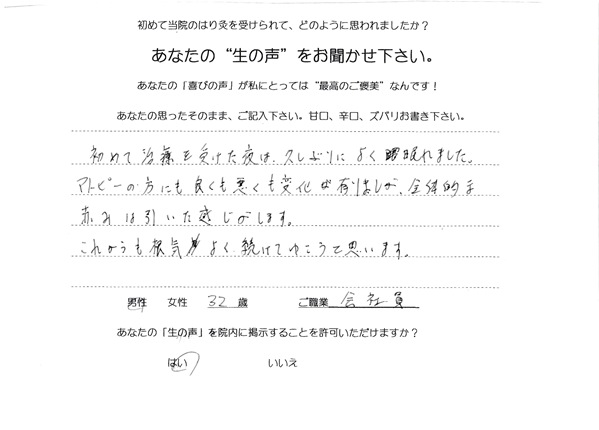 初めて当院のはり灸を受けられて、どのように思われましたか？
あなたの“生の声”をお聞かせ下さい。
あなたの「喜びの声」が私にとっては“最高のご褒美”なんです！
あなたの思ったそのまま、ご記入下さい。甘口、辛口、ズバリお書き下さい。
初めて治療を受けた夜は、久しぶりによく眠れました。
アトピーの方にも良くも悪くも変化が有りましが、全体的な
赤みは引いた感じがします。
これからも根気よく続けてゆこうて思います。
男性 女性 32 歳 ご職業 会社員
あなたの「生の声」を院内に掲示することを許可いただけますか？
はい いいえ